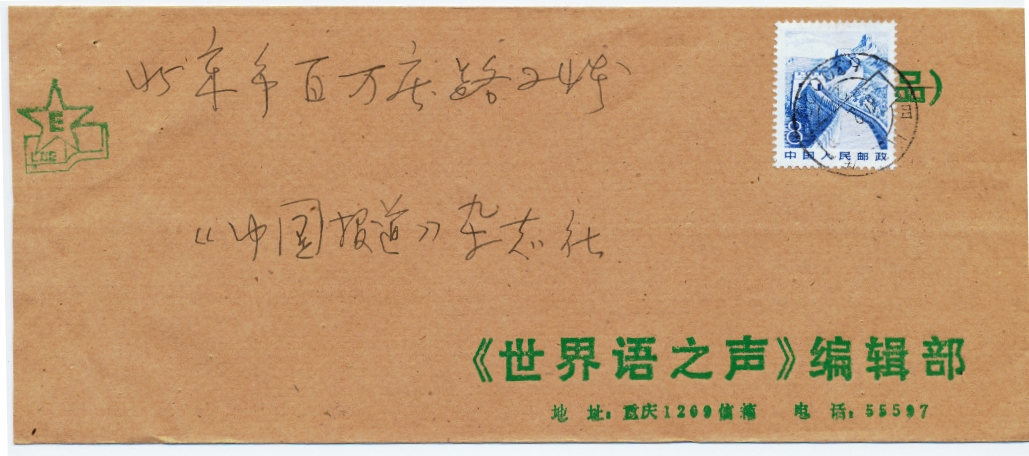 北京市百万庄路24号
《中国报道》杂志社
E
8
中国人民邮政
品)
《世界语之声》编辑部
地 址: 重庆1209信箱 电 话: 55597